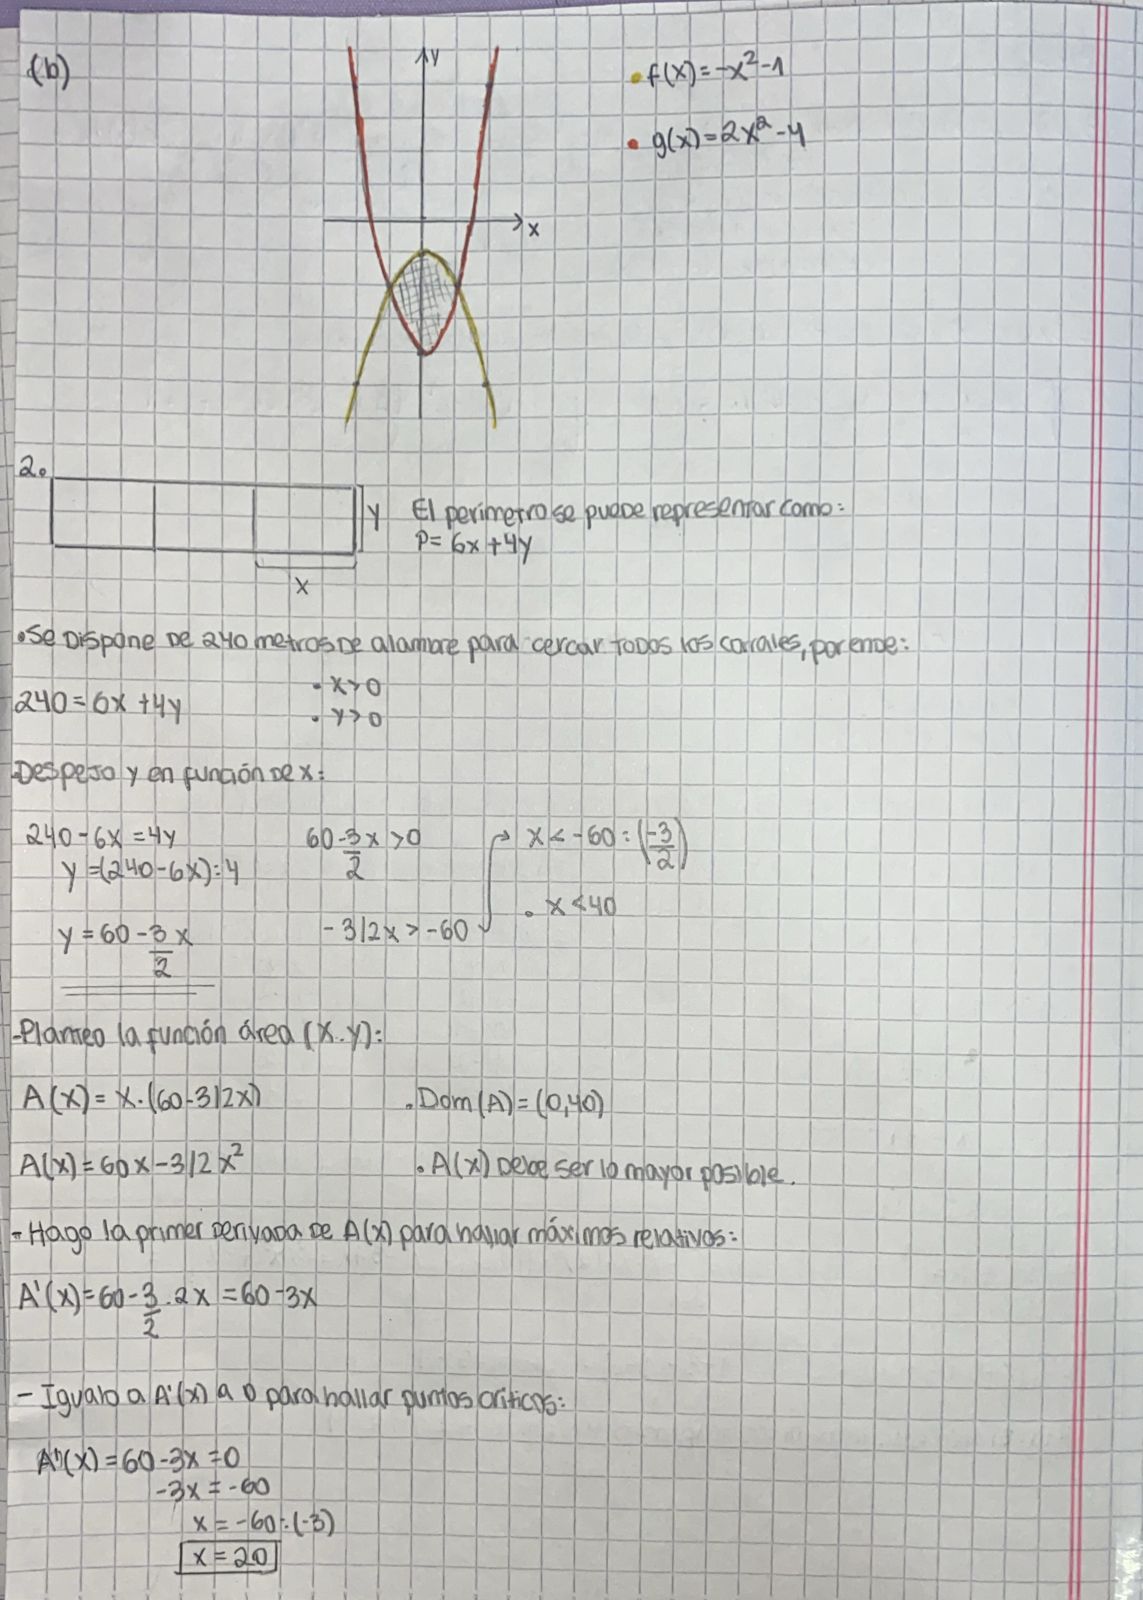 (b)
y
• f(x)=-x²-1
• g(x)=2x²-4
x
2.
y
El perimetro se puede representar como:
P= 6x+4y
x
•Se dispone de 240 metros de alambre para cercar todos los corrales, por ende:
240=6x+4y
• x>0
• y>0
-Despejo y en función de x:
240-6x=4y
y=(240-6x):4
y=60-3/2x
60-3/2x>0
-3/2x>-60
x<-60:(-3/2)
• x<40
-Planteo la función área (x.y):
A(x)=x.(60-3/2x)
•Dom(A)=(0,40)
A(x)=60x-3/2x²
•A(x) debe ser lo mayor posible.
-Hago la primer derivada de A(x) para hallar máximos relativos:
A'(x)=60-3/2.2x=60-3x
-Igualo a A'(x) a 0 para hallar puntos críticos:
A'(x)=60-3x=0
-3x=-60
x=-60:(-3)
x=20